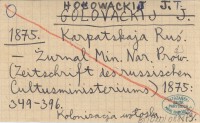 HOŁOWACKIJ J. T.
GOLOVACKIJ J.
1875. Karpatskaja Ruś.
— Žurnal Min. Nar. Prosv.
(Zeitschrift des russischen
Cultusministeriums) 1875:
349-396.
Kolonizacja wołoska